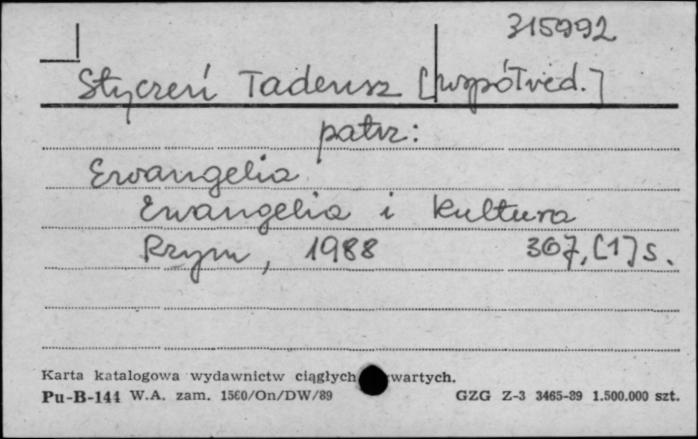 315992
Styczeń Tadeusz [współred.]
patrz:
Ewangelia
Ewangelia i kultura
Rzym, 1988 307, [1] s.
Karta katalogowa wydawnictw ciągłych wartych.
Pu-B-144 W.A. zam. 1560/On/DW/89 GZG Z-3 3465-89 1.500.000 szt.